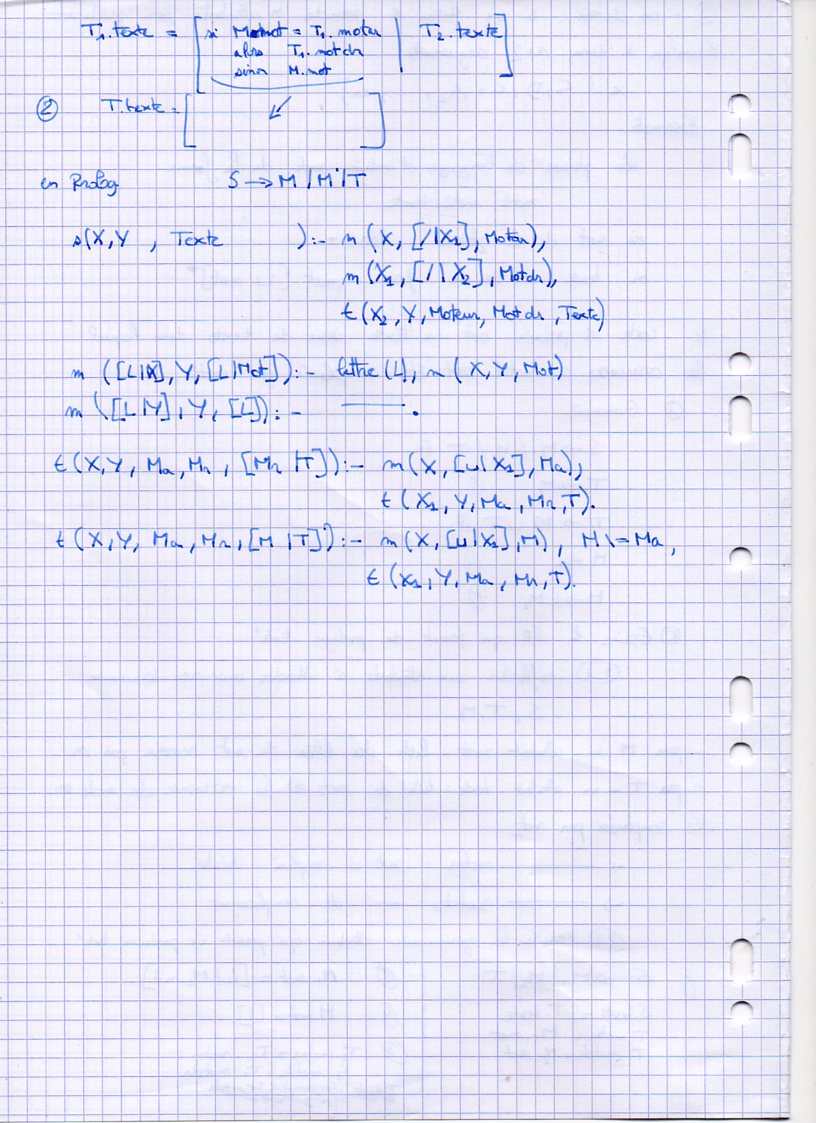 T₁.texte = [ si M.mot = T₁.motan | T₂.texte ]
alors T₁.motdn
sinon M.mot
② T.texte = [ ]
en Prolog S → M / M' / T
s(X,Y , Texte ):- m (X, [/|X₁], Motan),
m(X₁, [/|X₂], Motdn),
t(X₂, Y, Moteur, Motdn, Texte)
m ([L|X], Y, [L|Mot]):- lettre(L), m (X, Y, Mot)
m ([L|Y], Y, [L]):- ———.
t(X,Y, Ma, Mn, [Mn|T]):- m(X, [⊔|X₁], Ma),
t(X₁, Y, Ma, Mn, T).
t(X,Y, Ma, Mn, [M|T]):- m(X, [⊔|X₁], M), M\=Ma,
t(X₁, Y, Ma, Mn, T).